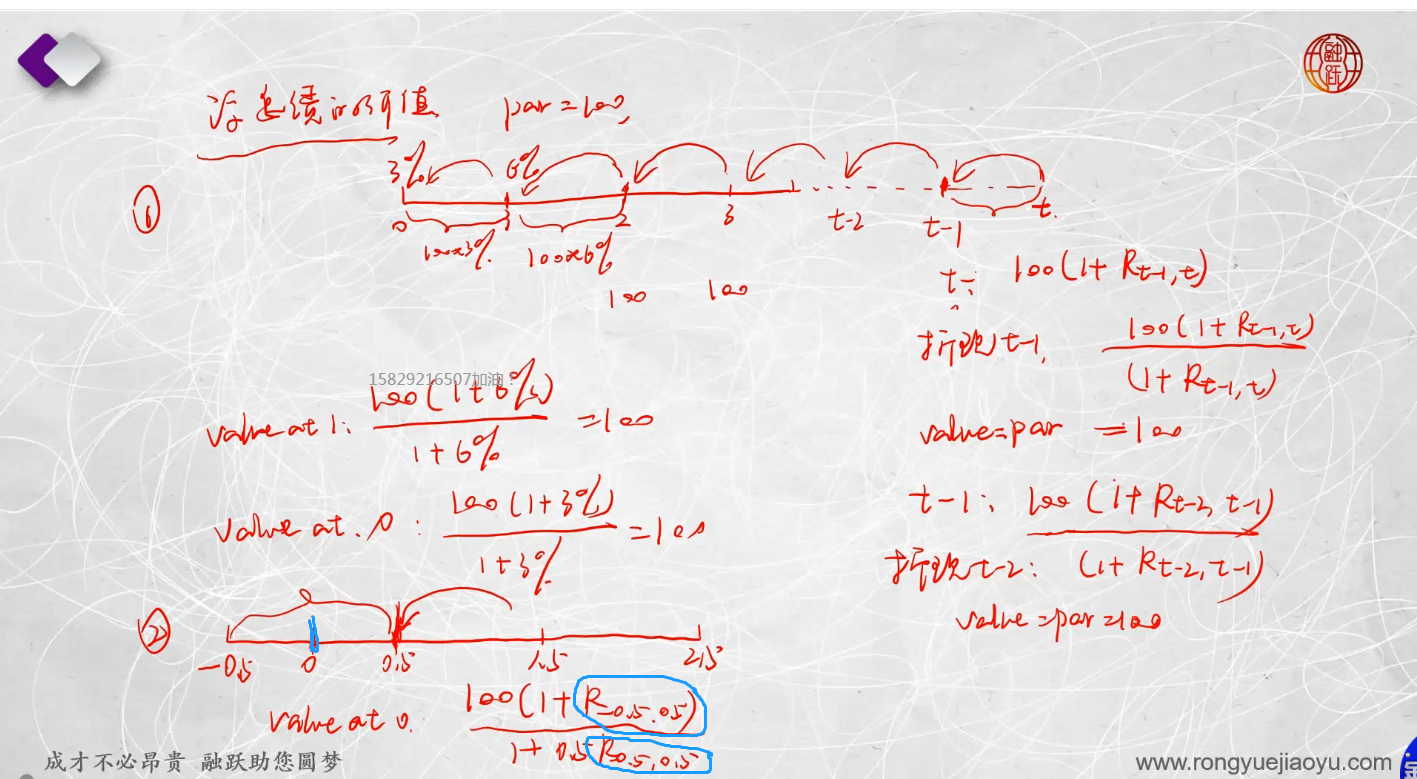 浮息债的价值 par=100
3% 6%
①
0 1 2 3 t-2 t-1 t
100×3% 100×6%
100 100
t: 100(1+R_{t-1,t})
折现t-1, 100(1+R_{t-1,t})
(1+R_{t-1,t})
value=par =100
t-1: 100(1+R_{t-2,t-1})
折现t-2: (1+R_{t-2,t-1})
value=par=100
15829216507加油!
value at 1: 100(1+6%)
1+6%
=100
value at 0: 100(1+3%)
1+3%
=100
②
-0.5 0 0.5 1.5 2.5
value at 0. 100(1+R_{-0.5,0.5})
1+0.5R_{0.5,0.5}
成才不必昂贵 融跃助您圆梦
www.rongyuejiaoyu.com
融跃